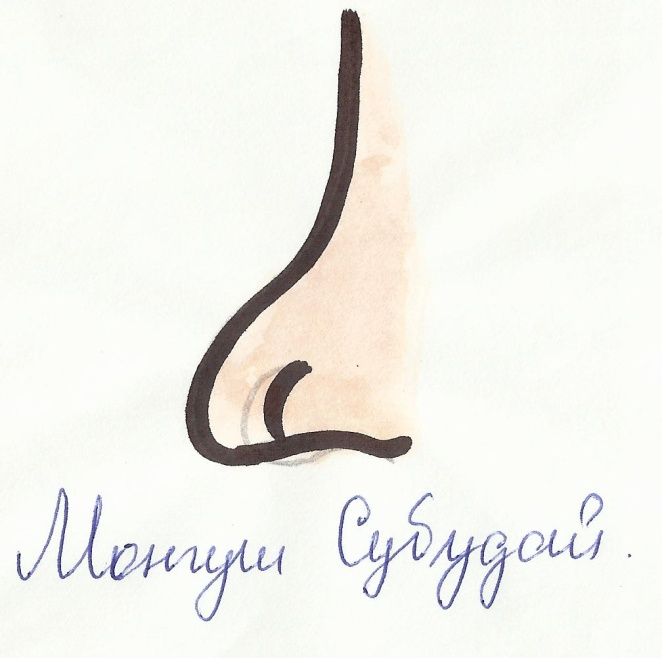 Монгуш Субудай.